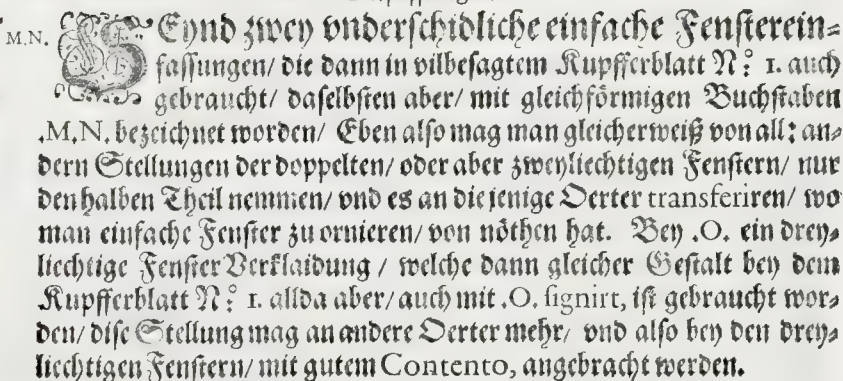 M.N. SEynd zwey vnderschidliche einfache Fensterein=
fassungen/ die dann in vilbesagtem Kupfferblatt No: 1. auch
gebraucht/ daselbsten aber/ mit gleichförmigen Buchstaben
.M.N. bezeichnet worden/ Eben also mag man gleicherweiß von all: an=
dern Stellungen der doppelten/ oder aber zweyliechtigen Fenstern/ nur
den halben Theil nemmen/ vnd es an die jenige Oerter transferiren/ wo
man einfache Fenster zu ornieren/ von nöthen hat. Bey .O. ein drey=
liechtige Fenster Verklaidung / welche dann gleicher Gestalt bey dem
Kupfferblatt No: 1. allda aber/ auch mit .O. signirt, ist gebraucht wor=
den/ dise Stellung mag an andere Oerter mehr/ vnd also bey den drey=
liechtigen Fenstern/ mit gutem Contento, angebracht werden.